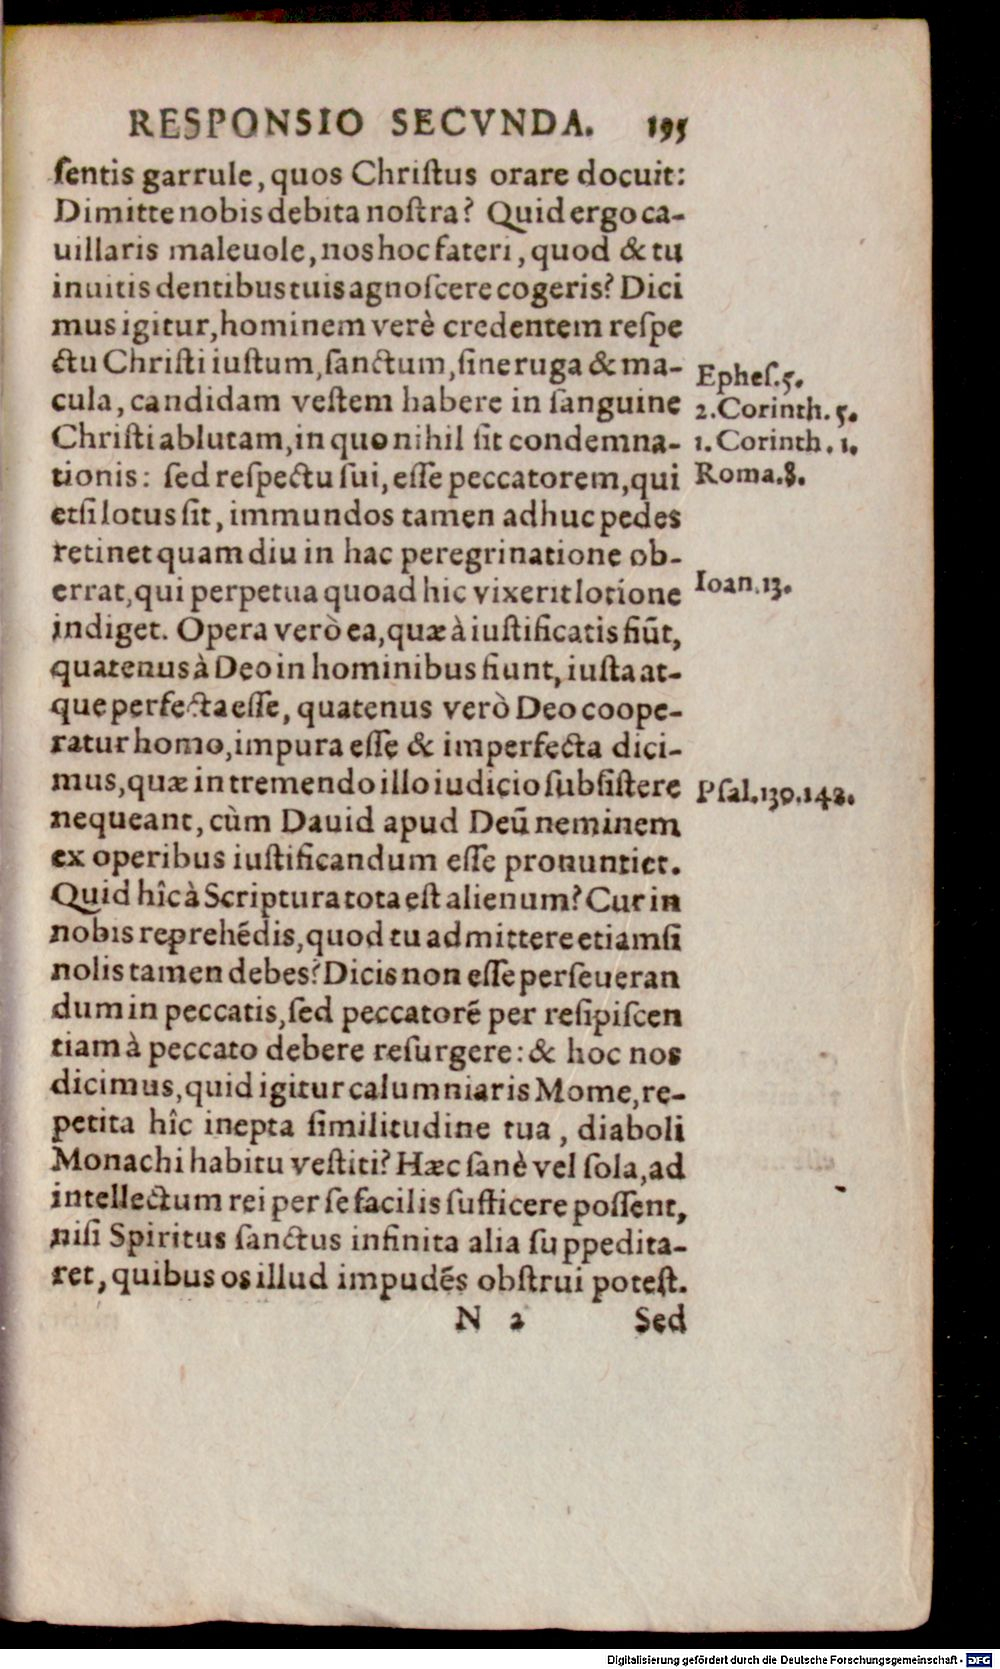 RESPONSIO SECVNDA. 195
ſentis garrule, quos Chriſtus orare docuit:
Dimitte nobis debita noſtra? Quid ergo ca-
uillaris maleuole, nos hoc fateri, quod & tu
inuitis dentibus tuis agnoſcere cogeris? Dici
mus igitur, hominem verè credentem reſpe
ctu Chriſti iuſtum, ſanctum, ſine ruga & ma-
Epheſ.5.
cula, candidam veſtem habere in ſanguine
2.Corinth.5.
Chriſti ablutam, in quo nihil ſit condemna-
1.Corinth.1.
tionis: ſed reſpectu ſui, eſſe peccatorem, qui
Roma.8.
etſi lotus ſit, immundos tamen adhuc pedes
retinet quam diu in hac peregrinatione ob-
errat, qui perpetua quoad hic vixerit lotione
Ioan.13.
indiget. Opera verò ea, quæ à iuſtificatis fiūt,
quatenus à Deo in hominibus fiunt, iuſta at-
que perfecta eſſe, quatenus verò Deo coope-
ratur homo, impura eſſe & imperfecta dici-
mus, quæ in tremendo illo iudicio ſubſiſtere
Pſal.130.142.
nequeant, cùm Dauid apud Deū neminem
ex operibus iuſtificandum eſſe pronuntiet.
Quid hîc à Scriptura tota eſt alienum? Cur in
nobis reprehēdis, quod tu admittere etiamſi
nolis tamen debes? Dicis non eſſe perſeueran
dum in peccatis, ſed peccatorē per reſipiſcen
tiam à peccato debere reſurgere: & hoc nos
dicimus, quid igitur calumniaris Mome, re-
petita hîc inepta ſimilitudine tua, diaboli
Monachi habitu veſtiti? Hæc ſanè vel ſola, ad
intellectum rei per ſe facilis ſufficere poſſent,
niſi Spiritus ſanctus infinita alia ſuppedita-
ret, quibus os illud impudēs obſtrui poteſt.
N 2 Sed
Digitalisierung gefördert durch die Deutsche Forschungsgemeinschaft - DFG